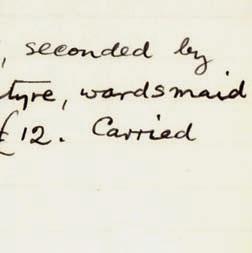 , seconded by
tyre, wardsmaid
£12. Carried